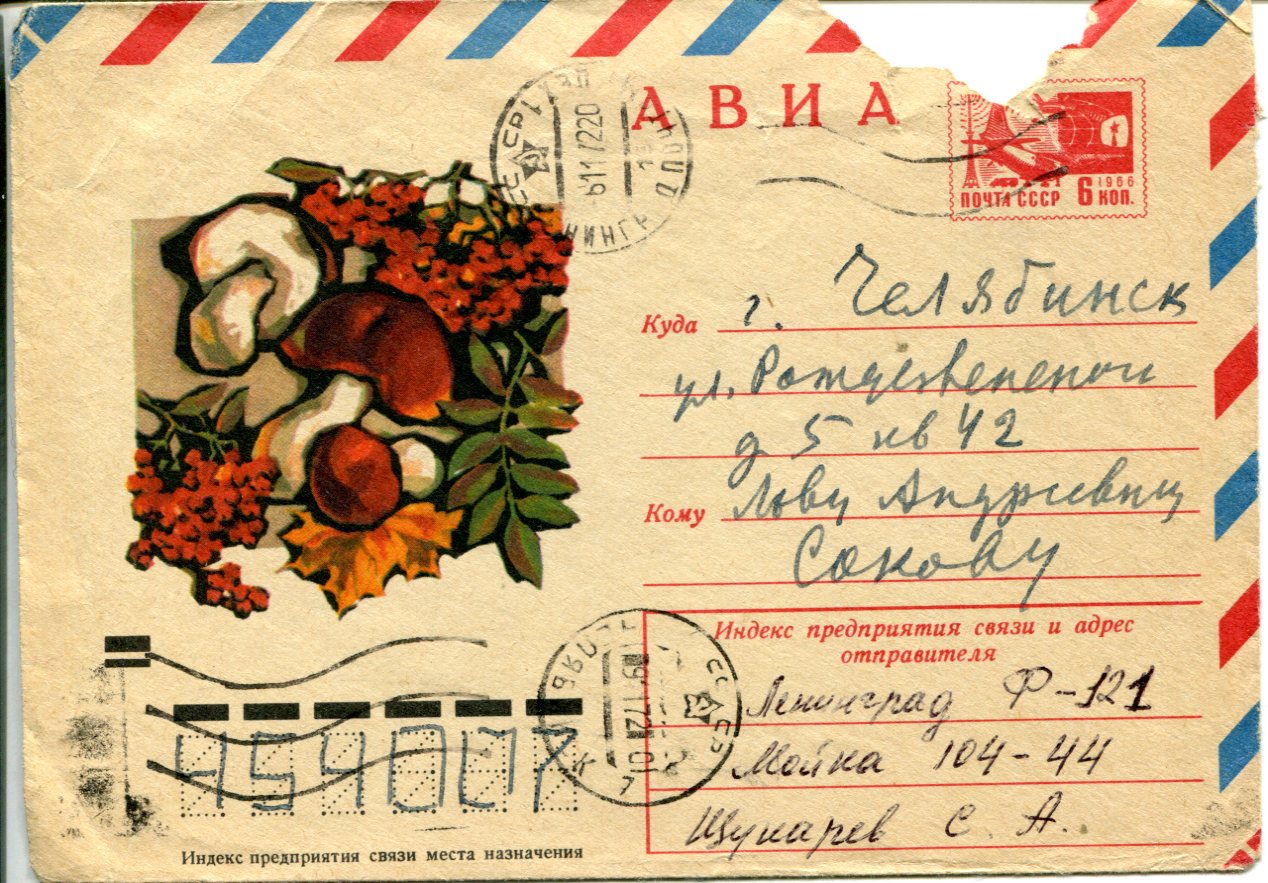 АВИА
ПОЧТА СССР 6 КОП.
1966
Куда г. Челябинск
ул. Рождественского
д 5 кв 42
Кому Льву Андреевичу
Сокову
Индекс предприятия связи и адрес
отправителя
Ленинград Ф-121
Мойка 104-44
Щукарев С. А.
454007
Индекс предприятия связи места назначения